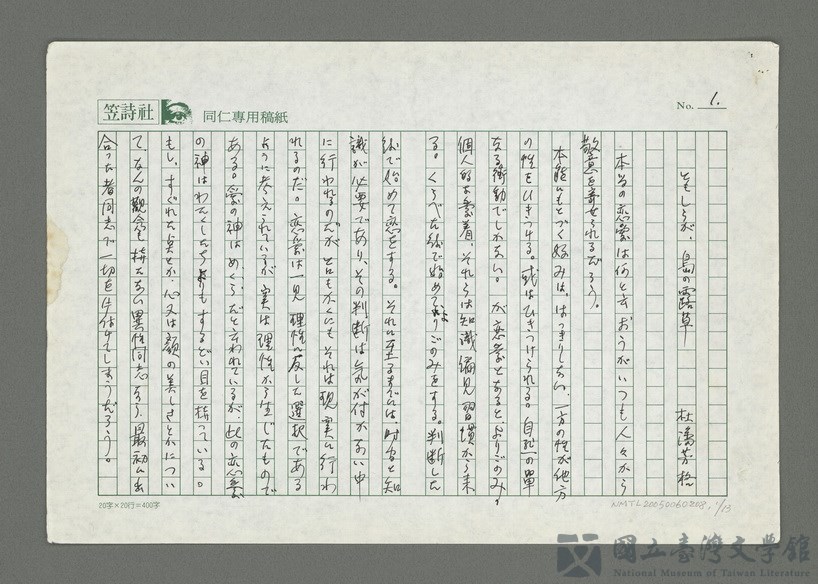 笠詩社
同仁專用稿紙
No. 1.
ともしらが、島の露草
杜潘芳格
本当の恋愛は何と云おうがいつも人々から
敬意を寄せられるだろう。
本能にもとづく好みは、はっきりしない、一方の性が他方
の性をひきつける。或はひきつけられる。自然の単
なる衝動でしかない。が恋愛となると、よりごのみ。
個人的な愛着、それらは知識偏見習慣から来
る。くらべた後で始めてよりごのみをする。判断した
後で始めて恋をする。それに至るまでには、時間と知
識が必要であり、その判断は気が付かない中
に行われるのだが、とにもかくにもそれは現実に行わ
れるのだ。恋愛は一見理性に反した選択である
ように考えられているが、実は理性から生じたもので
ある。愛の神はめくらだと云われているが、此の恋愛
の神はわたくしたちよりもするどい目を持っている。
もし、すぐれた点とか、心又は顔の美しさとかについ
て、なんの観念も持たない異性同志なら、最初に出
合った者同志で一切を片付けてしまうだろう。
20字×20行=400字
NMTL20050060208. 1/13
國立臺灣文學館
National Museum of Taiwan Literature